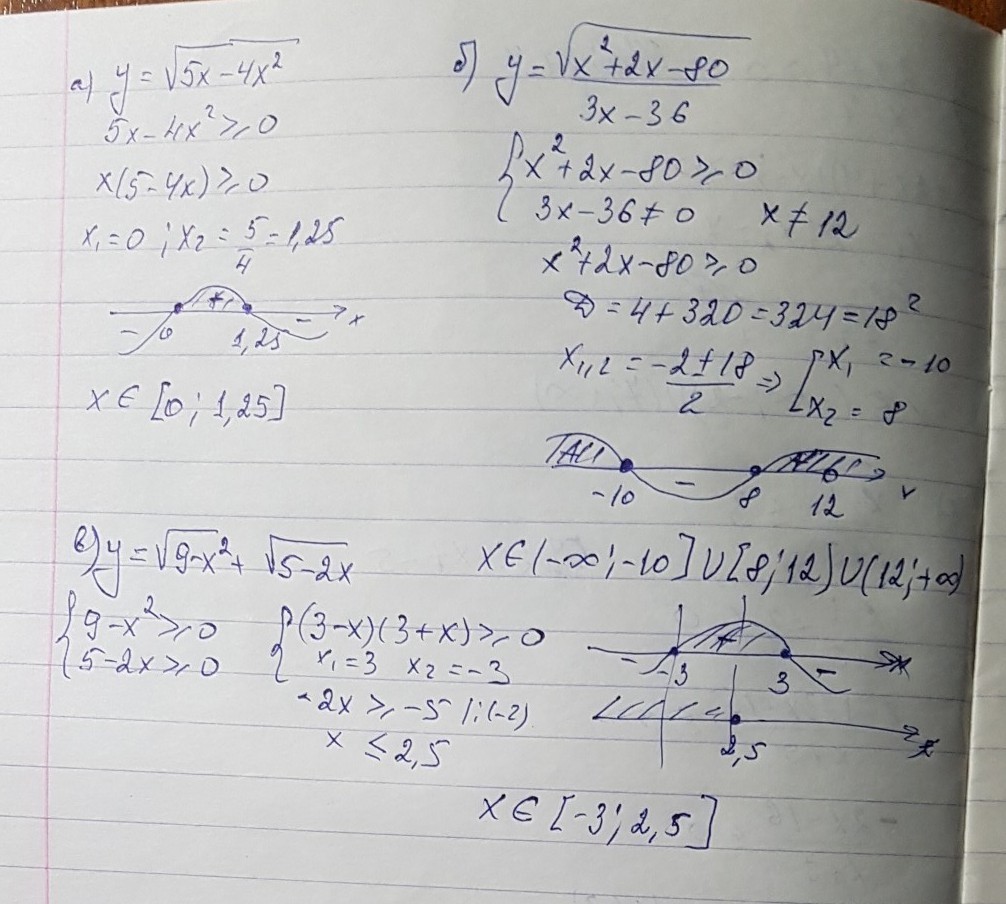 а) y = √5x-4x²
5x-4x² ≥ 0
x(5-4x) ≥ 0
x₁=0 ; x₂ = 5/4 = 1,25
- 0 + 1,25 - x
x ∈ [0; 1,25]
б) y = √x²+2x-80
3x-36
{ x²+2x-80 ≥ 0
3x-36 ≠ 0 x ≠ 12
x²+2x-80 ≥ 0
D = 4+320 = 324 = 18²
x₁,₂ = -2±18/2 ⇒ [ x₁ = -10
x₂ = 8
-10 - 8 12
x ∈ (-∞; -10] U [8; 12) U (12; +∞)
в) y = √9-x² + √5-2x
{ 9-x² ≥ 0
5-2x ≥ 0
{ (3-x)(3+x) ≥ 0
x₁=3 x₂=-3
-2x ≥ -5 |:(-2)
x ≤ 2,5
- -3 + 3 - x
2,5 x
x ∈ [-3; 2,5]